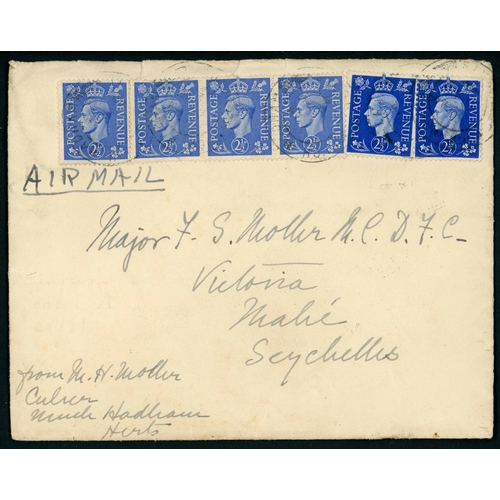 POSTAGE REVENUE 2½ POSTAGE REVENUE 2½ POSTAGE REVENUE 2½ POSTAGE REVENUE 2½ POSTAGE REVENUE 2½ POSTAGE REVENUE 2½
AIR MAIL
Major F. S. Moller M.C. D.F.C.
Victoria
Mahé
Seychelles
from M. H. Moller
Culver
Much Hadham
Herts